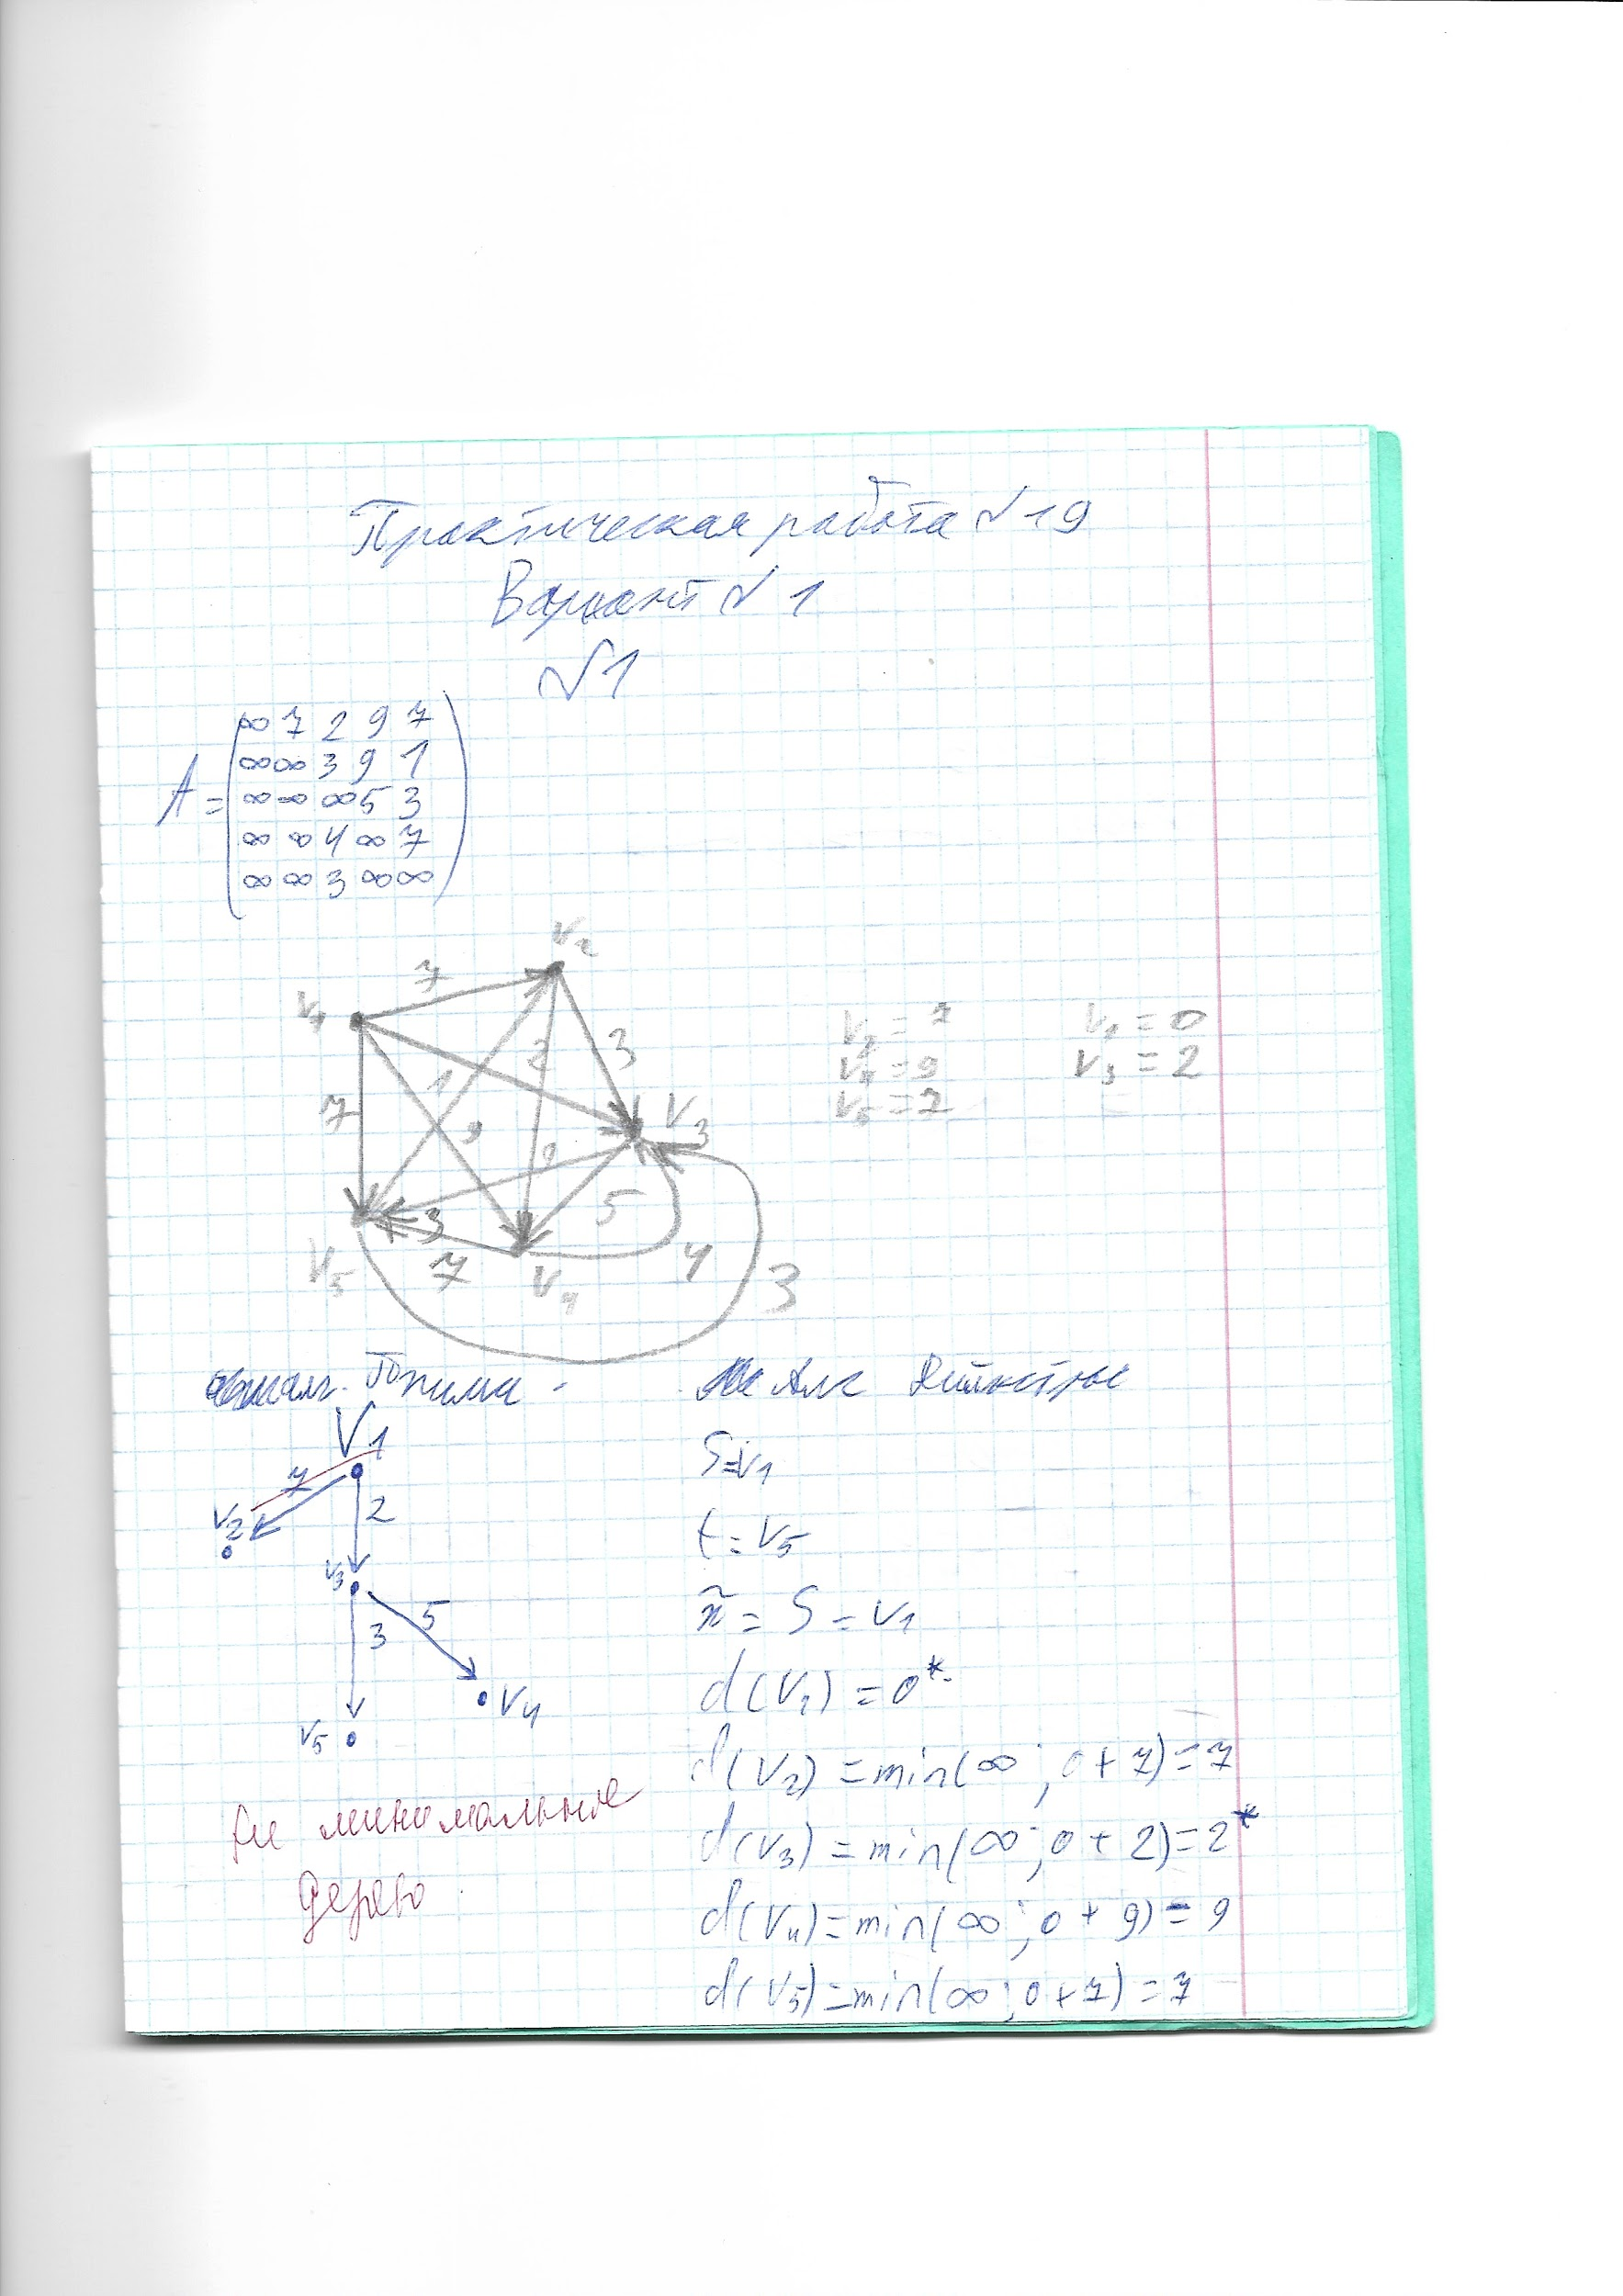 Практическая работа №19
Вариант № 1
№1
A =
∞ 7 2 9 7
∞ ∞ 3 9 1
∞ ∞ ∞ 5 3
∞ ∞ 4 ∞ 7
∞ ∞ 3 ∞ ∞
V2
7
V1
3
2
1
7
9
9
V3
5
3
7
4
3
V5
V4
V2 = 7
V4 = 9
V5 = 7
V1 = 0
V3 = 2
Прима -
Алг Дейкстры
V1
7
2
V2
V3
3
5
V4
V5
Не минимальное
дерево
S=V1
t = V5
x̃ = S = V1
d(V1) = 0*
d(V2) = min(∞; 0+7)=7
d(V3) = min(∞; 0+2)=2*
d(V4) = min(∞; 0+9)=9
d(V5) = min(∞; 0+7)=7